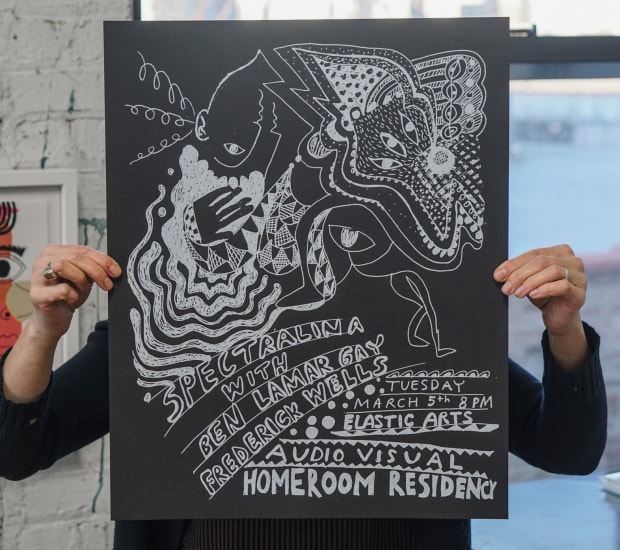 SPECTRALINA
WITH
BEN LAMAR GAY
FREDERICK WELLS
TUESDAY
MARCH 5th 8 PM
ELASTIC ARTS
AUDIO VISUAL
HOMEROOM RESIDENCY